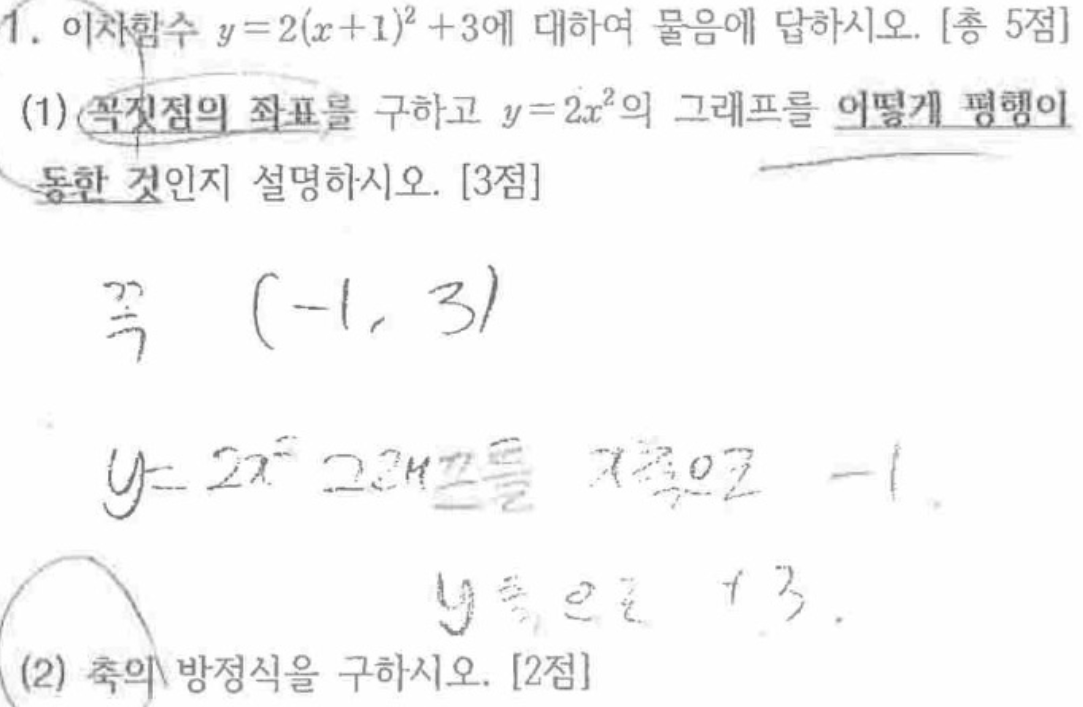 1. 이차함수 y=2(x+1)²+3에 대하여 물음에 답하시오. [총 5점]
(1) 꼭짓점의 좌표를 구하고 y=2x²의 그래프를 어떻게 평행이
동한 것인지 설명하시오. [3점]
꼭 (-1, 3)
y=2x² 그래프를 x축으로 -1.
y축으로 +3.
(2) 축의 방정식을 구하시오. [2점]